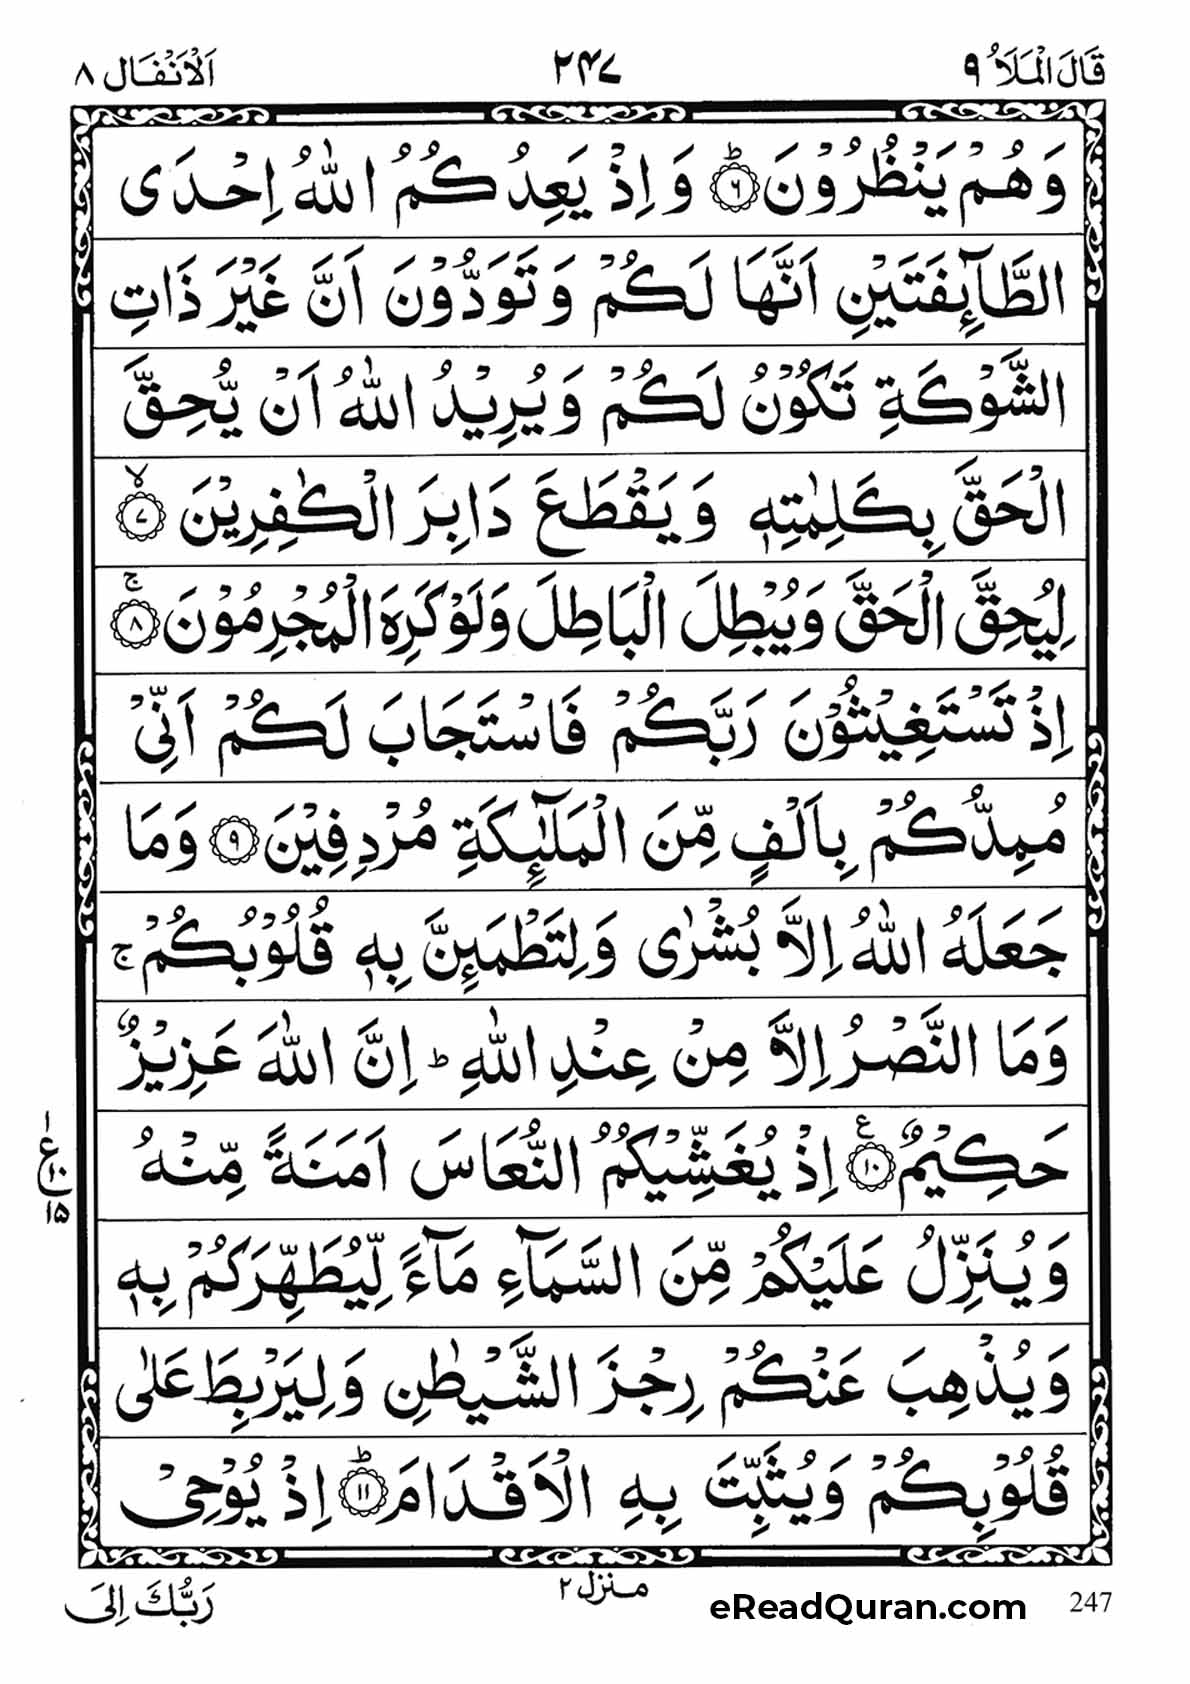 قَالَ الْمَلَاُ ۹ ۲۴۷ اَلْاَنْفَال ۸
وَهُمْ يَنْظُرُوْنَ ؕ۶ وَ اِذْ يَعِدُكُمُ اللّٰهُ اِحْدَى
الطَّآىِٕفَتَيْنِ اَنَّهَا لَكُمْ وَ تَوَدُّوْنَ اَنَّ غَيْرَ ذَاتِ
الشَّوْكَةِ تَكُوْنُ لَكُمْ وَ يُرِيْدُ اللّٰهُ اَنْ يُّحِقَّ
الْحَقَّ بِكَلِمٰتِهٖ وَ يَقْطَعَ دَابِرَ الْكٰفِرِيْنَ ۙ۷
لِيُحِقَّ الْحَقَّ وَيُبْطِلَ الْبَاطِلَ وَلَوْ كَرِهَ الْمُجْرِمُوْنَ ۚ۸
اِذْ تَسْتَغِيْثُوْنَ رَبَّكُمْ فَاسْتَجَابَ لَكُمْ اَنِّىْ
مُمِدُّكُمْ بِاَلْفٍ مِّنَ الْمَلٰٓىِٕكَةِ مُرْدِفِيْنَ ۹ وَمَا
جَعَلَهُ اللّٰهُ اِلَّا بُشْرٰى وَ لِتَطْمَىِٕنَّ بِهٖ قُلُوْبُكُمْ ج
وَمَا النَّصْرُ اِلَّا مِنْ عِنْدِ اللّٰهِ ط اِنَّ اللّٰهَ عَزِيْزٌ
حَكِيْمٌ ۱۰ ع اِذْ يُغَشِّيْكُمُ النُّعَاسَ اَمَنَةً مِّنْهُ
۱ ع ۱۰ ۱۵
وَ يُنَزِّلُ عَلَيْكُمْ مِّنَ السَّمَآءِ مَآءً لِّيُطَهِّرَكُمْ بِهٖ
وَ يُذْهِبَ عَنْكُمْ رِجْزَ الشَّيْطٰنِ وَ لِيَرْبِطَ عَلٰى
قُلُوْبِكُمْ وَ يُثَبِّتَ بِهِ الْاَقْدَامَ ؕ۱۱ اِذْ يُوْحِىْ
247 eReadQuran.com منزل ۲ رَبُّكَ اِلَى